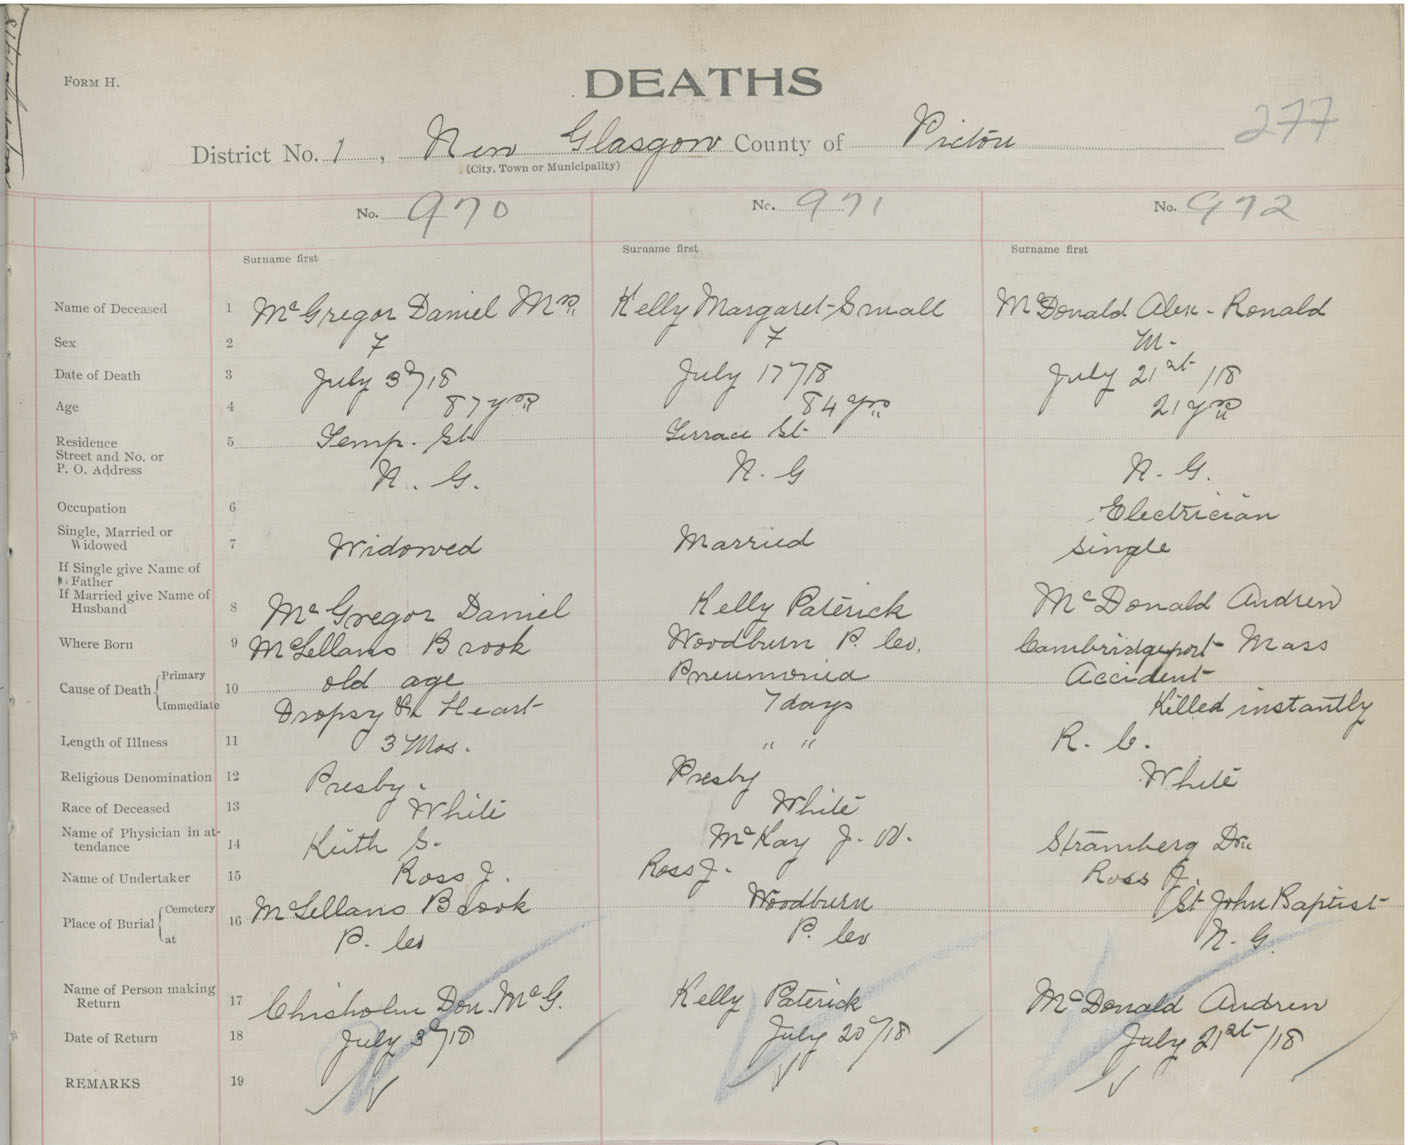 FORM H.
DEATHS
277
District No. 1, New Glasgow County of Pictou
(City, Town or Municipality)
No. 970 No. 971 No. 972
Surname first Surname first Surname first
Name of Deceased 1 McGregor Daniel Mrs. Kelly Margaret-Small McDonald Alex-Ronald
Sex 2 F F M-
Date of Death 3 July 3/18 July 17/18 July 21st/18
Age 4 87 yrs 84 yrs 21 yrs
Residence 5 Temp. St. Terrace St
Street and No. or
P. O. Address N. G. N. G N. G.
Occupation 6 Electrician
Single, Married or
Widowed 7 Widowed Married Single
If Single give Name of
Father
If Married give Name of
Husband 8 McGregor Daniel Kelly Paterick McDonald Andrew
Where Born 9 McLellans Brook Woodburn P. Co. Cambridgeport Mass
Cause of Death Primary 10 old age Pneumonia Accident
Immediate Dropsy Heart 7 days Killed instantly
Length of Illness 11 3 Mos. " " R. C.
Religious Denomination 12 Presby. Presby White
Race of Deceased 13 White White
Name of Physician in attendance 14 Keith S. McKay J. W. Stramberg Dr.
Name of Undertaker 15 Ross J. Ross J. Ross J.
Place of Burial Cemetery 16 McLellans Brook Woodburn St John Baptist
at P. Co P. Co N. G.
Name of Person making
Return 17 Chisholm Don. McG. Kelly Paterick McDonald Andrew
Date of Return 18 July 3/18 July 20/18 July 21st/18
REMARKS 19